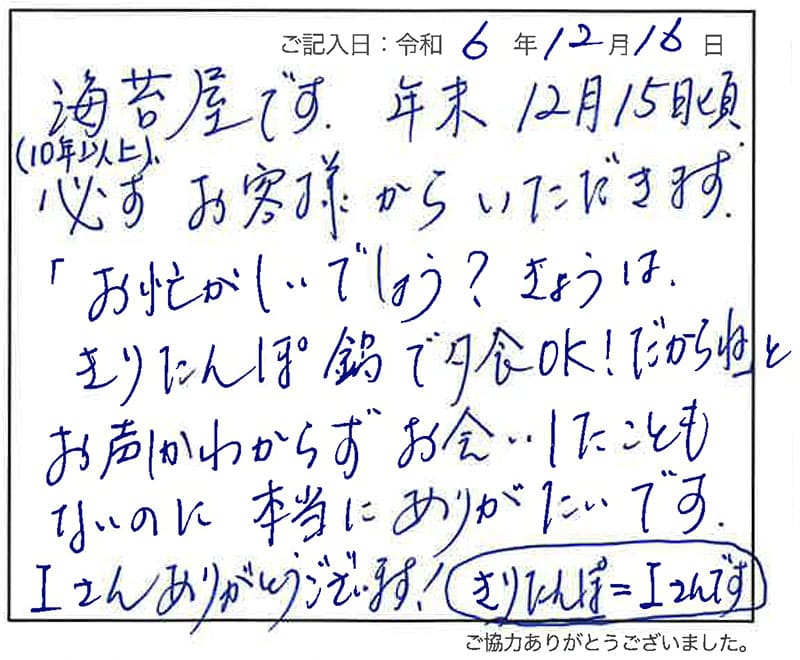 ご記入日：令和 6 年 12 月 16 日
海苔屋です. 年末 12月15日頃.
(10年以上)、
必ず お客様からいただきます.
「お忙がしいでしょう？きょうは.
きりたんぽ鍋で夕食OK！だからね」と
お声しかわからず お会いしたことも
ないのに 本当に ありがたいです.
Iさんありがとうございます！ きりたんぽ＝Iさんです
ご協力ありがとうございました。